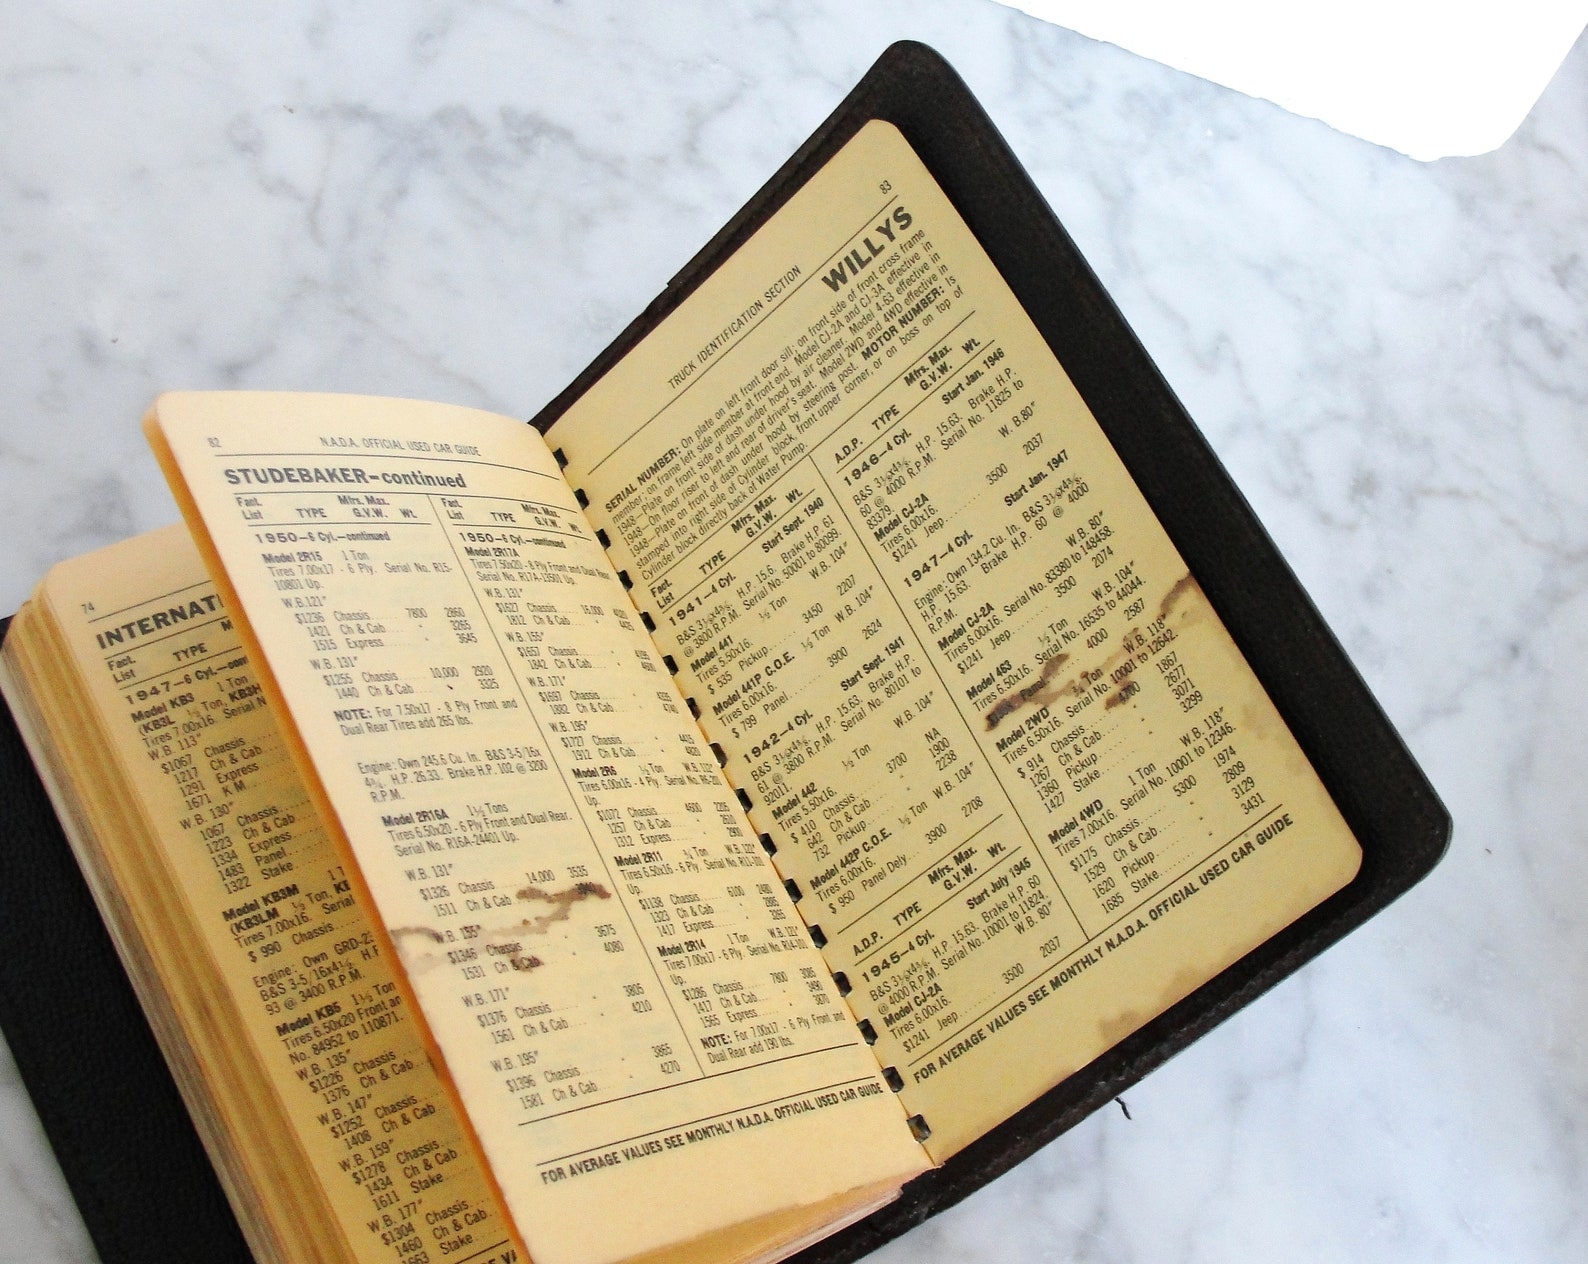 74
INTERNATI
Fact.
List TYPE
1947-6 Cyl.-con
Model KB3 1 Ton
(KB3L ½ Ton, KB3H
Tires 7.00x16. Serial N
W.B. 113"
$1067 Chassis
1217 Ch & Cab
1291 Express
1671 K M
W.B. 130"
1067 Chassis
1223 Ch & Cab
1334 Express
1483 Panel
1322 Stake
Model KB3M
(KB3LM ½ Ton,
Tires 7.00x16. Serial
$ 990 Chassis
Engine: Own GRD-23
B&S 3-5/16x4½. H.P
93 @ 3400 R.P.M.
Model KB5 1½ Ton
Tires 6.50x20 Front an
No. 84952 to 110871.
W.B. 135"
$1226 Chassis
1376 Ch & Cab
W.B. 147"
$1252 Chassis
1408 Ch & Cab
W.B. 159"
$1278 Chassis
1434 Ch & Cab
1611 Stake
W.B. 177"
$1304 Chassis
1460 Ch & Cab
1663 Stake
82 N.A.D.A. OFFICIAL USED CAR GUIDE
STUDEBAKER-continued
Fact. Mfrs. Max.
List TYPE G.V.W. Wt.
1950-6 Cyl.-continued
Model 2R15 1 Ton
Tires 7.00x17 - 6 Ply. Serial No. R15-
10801 Up.
W.B.121"
$1236 Chassis 7800 2860
1421 Ch & Cab " 3265
1515 Express " 3645
W.B. 131"
$1255 Chassis 10,000 2920
1440 Ch & Cab " 3325
NOTE: For 7.50x17 - 8 Ply Front and
Dual Rear Tires add 265 lbs.
Engine: Own 245.6 Cu. In. B&S 3-5/16x
4¾. H.P. 26.33. Brake H.P. 102 @ 3200
R.P.M.
Model 2R16A 1½ Tons
Tires 6.50x20 - 6 Ply Front and Dual Rear.
Serial No. R16A-24401 Up.
W.B. 131"
$1326 Chassis 14,000 3535
1511 Ch & Cab
W.B. 155"
$1346 Chassis " 3675
1531 Ch & Cab " 4080
W.B. 171"
$1376 Chassis " 3805
1561 Ch & Cab " 4210
W.B. 195"
$1396 Chassis " 3865
1581 Ch & Cab " 4270
Fact. Mfrs. Max.
List TYPE G.V.W. Wt.
1950-6 Cyl.-continued
Model 2R17A
Tires 7.50x20 - 8 Ply Front and Dual Rear.
Serial No. R17A-13501 Up.
W.B. 131"
$1627 Chassis 16,000
1812 Ch & Cab
W.B. 155"
$1657 Chassis
1842 Ch & Cab
W.B. 171"
$1697 Chassis
1882 Ch & Cab
W.B. 195"
$1727 Chassis
1912 Ch & Cab
Model 2R6 ½ Ton W.B. 112"
Tires 6.00x16 - 4 Ply. Serial No.
Up.
$1072 Chassis 4600 2205
1257 Ch & Cab " 2610
1312 Express " 2900
Model 2R11 ¾ Ton
Tires 6.50x16 - 6 Ply. Serial No.
Up.
$1138 Chassis 6100 2480
1323 Ch & Cab " 2885
1417 Express " 3265
Model 2R14 1 Ton W.B. 121"
Tires 7.00x17 - 6 Ply. Serial No.
Up.
$1286 Chassis 7800 3085
1417 Ch & Cab " 3490
1565 Express " 3870
NOTE: For 7.00x17 - 6 Ply Front and
Dual Rear add 190 lbs.
FOR AVERAGE VALUES SEE MONTHLY N.A.D.A. OFFICIAL USED CAR GUIDE
TRUCK IDENTIFICATION SECTION 83
WILLYS
SERIAL NUMBER: On plate on left front door sill; on front side of front cross frame
member; on frame left side member at front end. Model CJ-2A and CJ-3A effective in
1948—Plate on front side of dash under hood by air cleaner. Model 4-63 effective in
1948—On floor riser to left and rear of driver's seat. Model 2WD and 4WD effective in
1948—Plate on front of dash under hood by steering post. MOTOR NUMBER: Is
stamped into right side of Cylinder block, front upper corner, or on boss on top of
Cylinder block directly back of Water Pump.
Fact. Mfrs. Max.
List TYPE G.V.W. Wt.
1941-4 Cyl. Start Sept. 1940
B&S 3⅛x4⅜. H.P. 15.6. Brake H.P. 61
@ 3800 R.P.M. Serial No. 50001 to 80099.
Model 441 ½ Ton W.B. 104"
Tires 5.50x16.
$ 535 Pickup 3450 2207
Model 441P C.O.E. ½ Ton W.B. 104"
Tires 6.00x16.
$ 799 Panel 3900 2624
1942-4 Cyl. Start Sept. 1941
B&S 3⅛x4⅜. H.P. 15.63. Brake H.P.
61 @ 3800 R.P.M. Serial No. 80101 to
92011.
Model 442 ½ Ton W.B. 104"
Tires 5.50x16.
$ 410 Chassis 3700 NA
642 Ch & Cab " 1900
732 Pickup " 2238
Model 442P C.O.E. ½ Ton W.B. 104"
Tires 6.00x16.
$ 950 Panel Dely 3900 2708
A.D.P. TYPE Mfrs. Max. G.V.W. Wt.
1945-4 Cyl. Start July 1945
B&S 3⅛x4⅜. H.P. 15.63. Brake H.P. 60
@ 4000 R.P.M. Serial No. 10001 to 11824.
Model CJ-2A W.B. 80"
Tires 6.00x16.
$1241 Jeep 3500 2037
A.D.P. TYPE Mfrs. Max. G.V.W. Wt.
1946-4 Cyl. Start Jan. 1946
B&S 3⅛x4⅜. H.P. 15.63. Brake H.P.
60 @ 4000 R.P.M. Serial No. 11825 to
83379.
Model CJ-2A W. B.80"
Tires 6.00x16.
$1241 Jeep 3500 2037
1947-4 Cyl. Start Jan. 1947
Engine: Own 134.2 Cu. In. B&S 3⅛x4⅜.
H.P. 15.63. Brake H.P. 60 @ 4000
R.P.M.
Model CJ-2A W.B. 80"
Tires 6.00x16. Serial No. 83380 to 148458.
$1241 Jeep 3500 2074
Model 463 ½ Ton W.B. 104"
Tires 6.50x16. Serial No. 16535 to 44044.
Panel 4000 2587
Model 2WD ¾ Ton W.B. 118"
Tires 6.50x16. Serial No. 10001 to 12642.
$ 914 Chassis 4700 1867
1267 Ch & Cab " 2677
1360 Pickup " 3071
1427 Stake " 3299
Model 4WD 1 Ton W.B. 118"
Tires 7.00x16. Serial No. 10001 to 12346.
$1175 Chassis 5300 1974
1529 Ch & Cab " 2809
1620 Pickup " 3129
1685 Stake " 3431
FOR AVERAGE VALUES SEE MONTHLY N.A.D.A. OFFICIAL USED CAR GUIDE